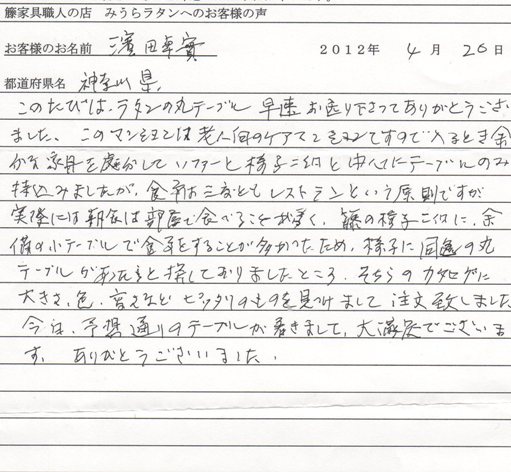 藤家具職人の店 みうらラタンへのお客様の声
お客様のお名前 濱田幸實 2012年 4月 26日
都道府県名 神奈川県.
このたびは、ラタンの丸テーブル 早速 お送り下さってありがとうござい
ました。 このマンションは老人向のケアマンションですので入るとき余
分な家具を処分して ソファーと椅子二つ と中心にテーブルのみ
持込みましたが、食事は三度ともレストランという原則ですが
実際には朝食は部屋で食べることが多く、籐の椅子二つに、余
備の小テーブルで食事をすることが多かったため、椅子に 同色の丸
テーブルがあったらと探しておりましたところ、そちらのカタログに
大きさ、色、高さなど ピッタリのものを見つけまして 注文致しました
今日、予想通りのテーブルが着きまして、大満足でございま
す。 ありがとうございました。